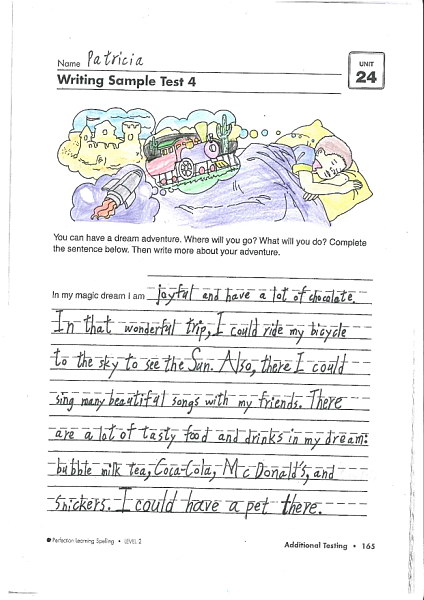 Name Patricia
UNIT
24
Writing Sample Test 4
You can have a dream adventure. Where will you go? What will you do? Complete
the sentence below. Then write more about your adventure.
In my magic dream i am joyful and have a lot of chocolate.
In that wonderful trip, I could ride my bicycle
to the sky to see the Sun. Also, there I could
sing many beautiful songs with my friends. There
are a lot of tasty food and drinks in my dream:
bubble milk tea, Coca-Cola, McDonald's, and
Snickers. I could have a pet there.
Perfection Learning Spelling • LEVEL 2
Additional Testing • 165